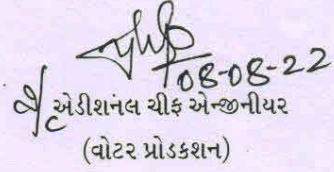 08-08-22
I/c એડીશનલ ચીફ એન્જીનીયર
(વોટર પ્રોડકશન)